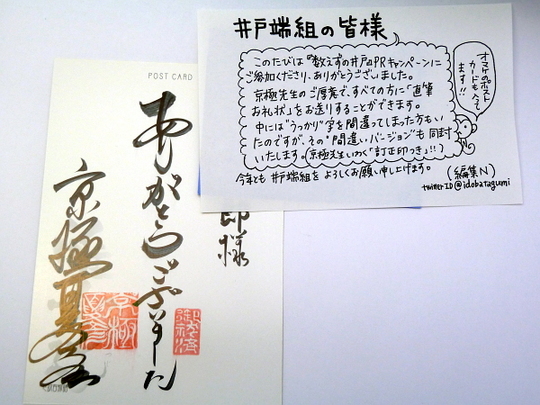 井戸端組の皆様
このたびは"数えずの井戸"PRキャンペーンに
ご参加くださり、ありがとうございました。
京極先生のご厚意で、すべての方に「直筆
お礼状」をお送りすることができます。
中には"うっかり"字を間違ってしまった方もい
たのですが、その"間違いバージョン"も同封
いたします。(京極先生いわく「訂正印つき」!!)
今年も井戸端組をよろしくお願い申し上げます。
(編集N)
twitterID@idobatagumi
オマケのポスト
カードも入って
ます!!
POST CARD
郎様
ありがとうございました
京極夏彦
京極
夏彦